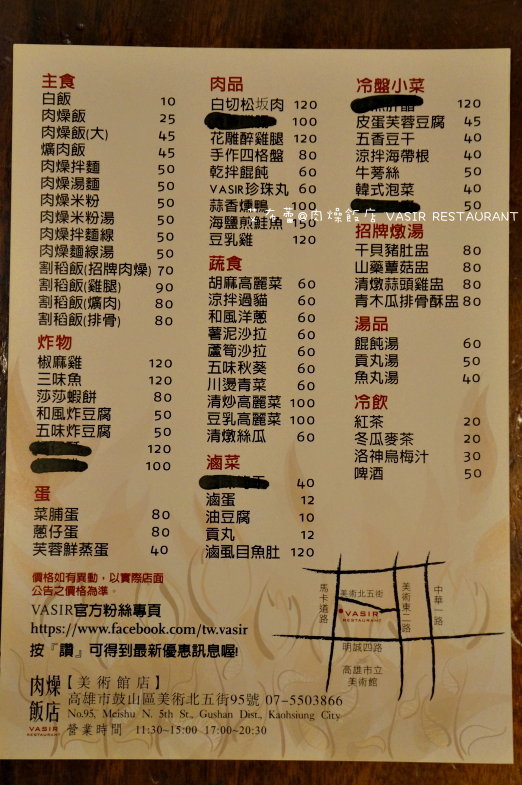 主食
白飯 10
肉燥飯 25
肉燥飯(大) 45
爌肉飯 45
肉燥拌麵 50
肉燥湯麵 50
肉燥米粉 50
肉燥米粉湯 50
肉燥拌麵線 50
肉燥麵線湯 50
割稻飯(招牌肉燥) 70
割稻飯(雞腿) 90
割稻飯(爌肉) 80
割稻飯(排骨) 80
炸物
椒麻雞 120
三味魚 120
莎莎蝦餅 80
和風炸豆腐 50
五味炸豆腐 50
120
100
蛋
菜脯蛋 80
蔥仔蛋 80
芙蓉鮮蒸蛋 40
肉品
白切松坂肉 120
100
花雕醉雞腿 120
手作四格盤 80
乾拌餛飩 60
VASIR珍珠丸 60
蒜香燻鴨 100
海鹽煎鮭魚 150
豆乳雞 120
蔬食
胡麻高麗菜 60
涼拌過貓 60
和風洋蔥 60
薯泥沙拉 60
蘆筍沙拉 60
五味秋葵 60
川燙青菜 60
清炒高麗菜 100
豆乳高麗菜 100
清燉絲瓜 60
滷菜
40
滷蛋 12
油豆腐 10
貢丸 12
滷虱目魚肚 120
冷盤小菜
120
皮蛋芙蓉豆腐 45
五香豆干 40
涼拌海帶根 40
牛蒡絲 50
韓式泡菜 40
@肉燥飯店 VASIR RESTAURANT
招牌燉湯
干貝豬肚盅 80
山藥蕈菇盅 80
清燉蒜頭雞盅 80
青木瓜排骨酥盅 80
湯品
餛飩湯 60
貢丸湯 50
魚丸湯 40
冷飲
紅茶 20
冬瓜麥茶 20
洛神烏梅汁 30
啤酒 50
價格如有異動，以實際店面
公告之價格為準。
VASIR官方粉絲專頁
https://www.facebook.com/tw.vasir
按『讚』可得到最新優惠訊息喔!
肉燥飯店
VASIR
RESTAURANT
【美術館店】
高雄市鼓山區美術北五街95號 07-5503866
No.95, Meishu N. 5th St., Gushan Dist., Kaohsiung City
營業時間 11:30~15:00 17:00~20:30
馬卡道路
美術北五街
VASIR
RESTAURANT
美術東二路
中華一路
明誠四路
高雄市立
美術館